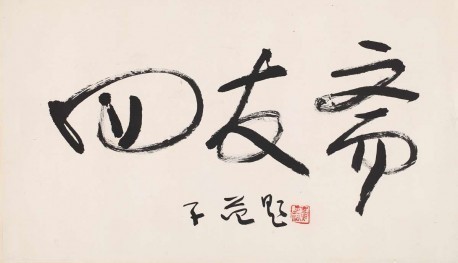 四友斋
子范题